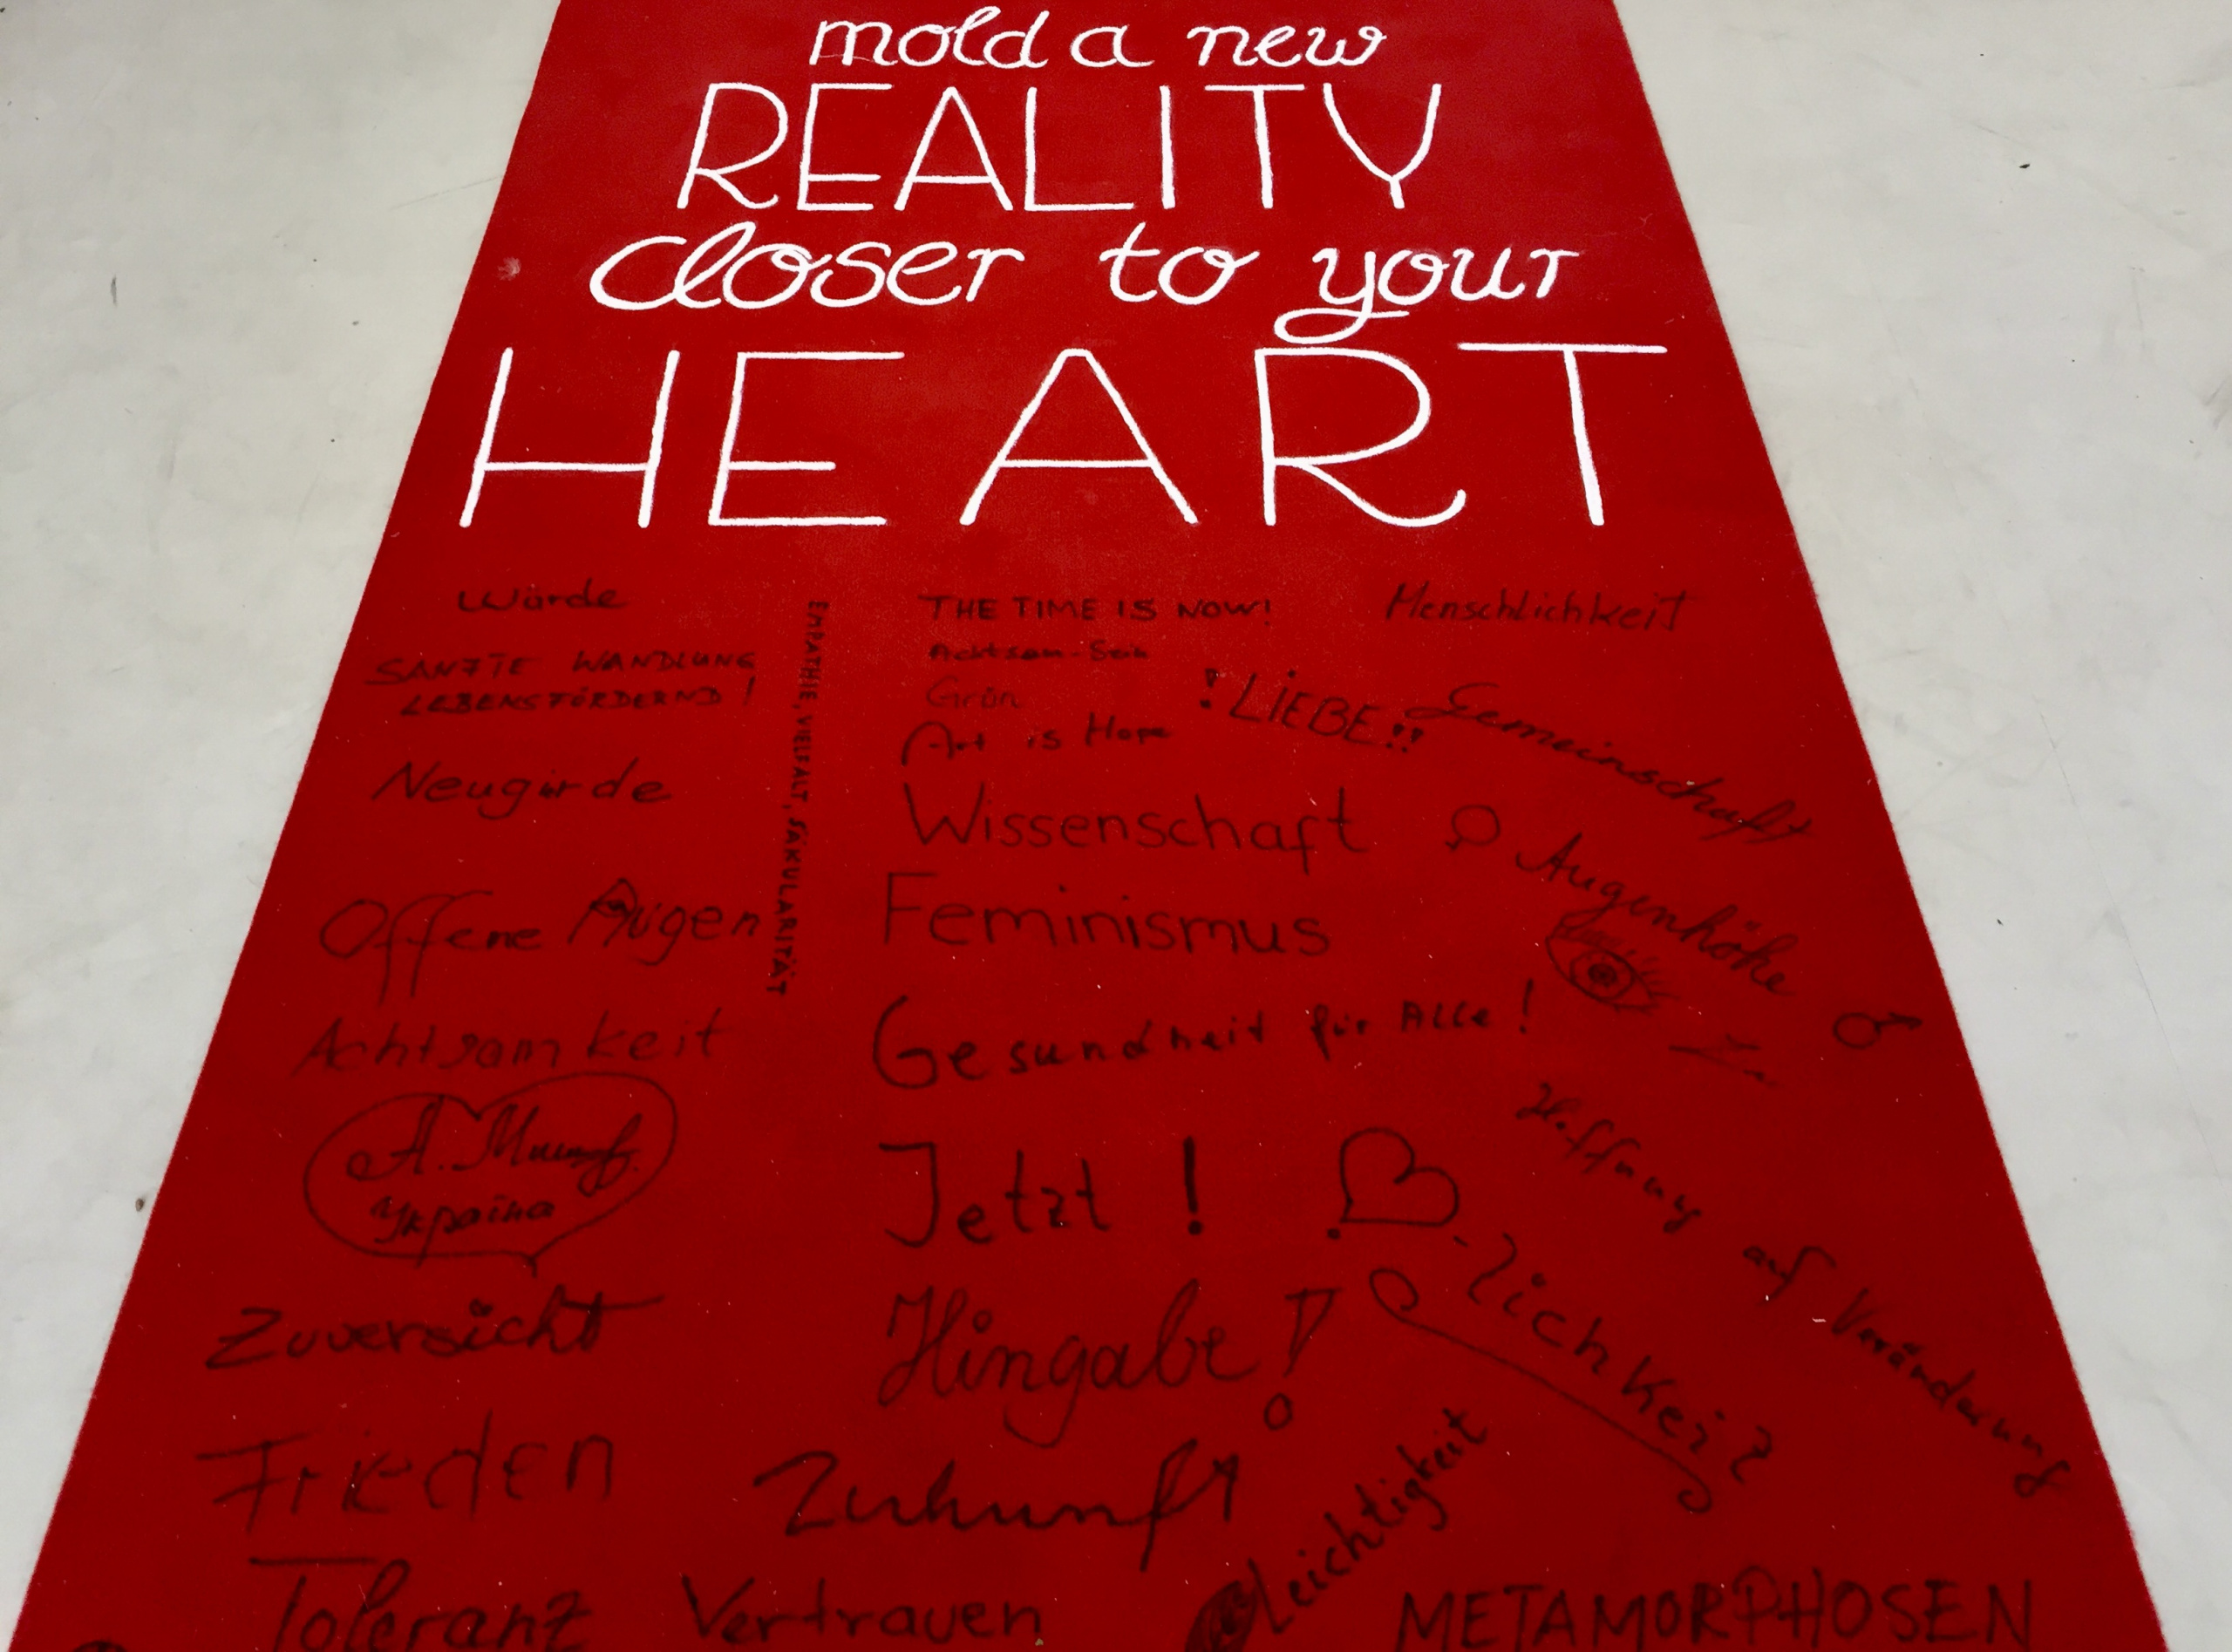 mold a new
REALITY
closer to your
HEART
Würde
SANFTE WANDLUNG
LEBENSFÖRDERND!
Neugirde
Offene Augen
Achtsamkeit
А.
Україна
Zuversicht
Frieden
Toleranz
EMPATHIE, VIELFALT, SÄKULARITÄT
THE TIME IS NOW!
Achtsam-Sein
Grün
Art is Hope
Wissenschaft
Feminismus
Gesundheit für Alle!
Jetzt!
Hingabe!
Zukunft
Vertrauen
Menschlichkeit
!LIEBE!!
Gemeinschaft
Augenhöhe
Hoffnung auf Veränderung
-lichkeit
Leichtigkeit
METAMORPHOSEN